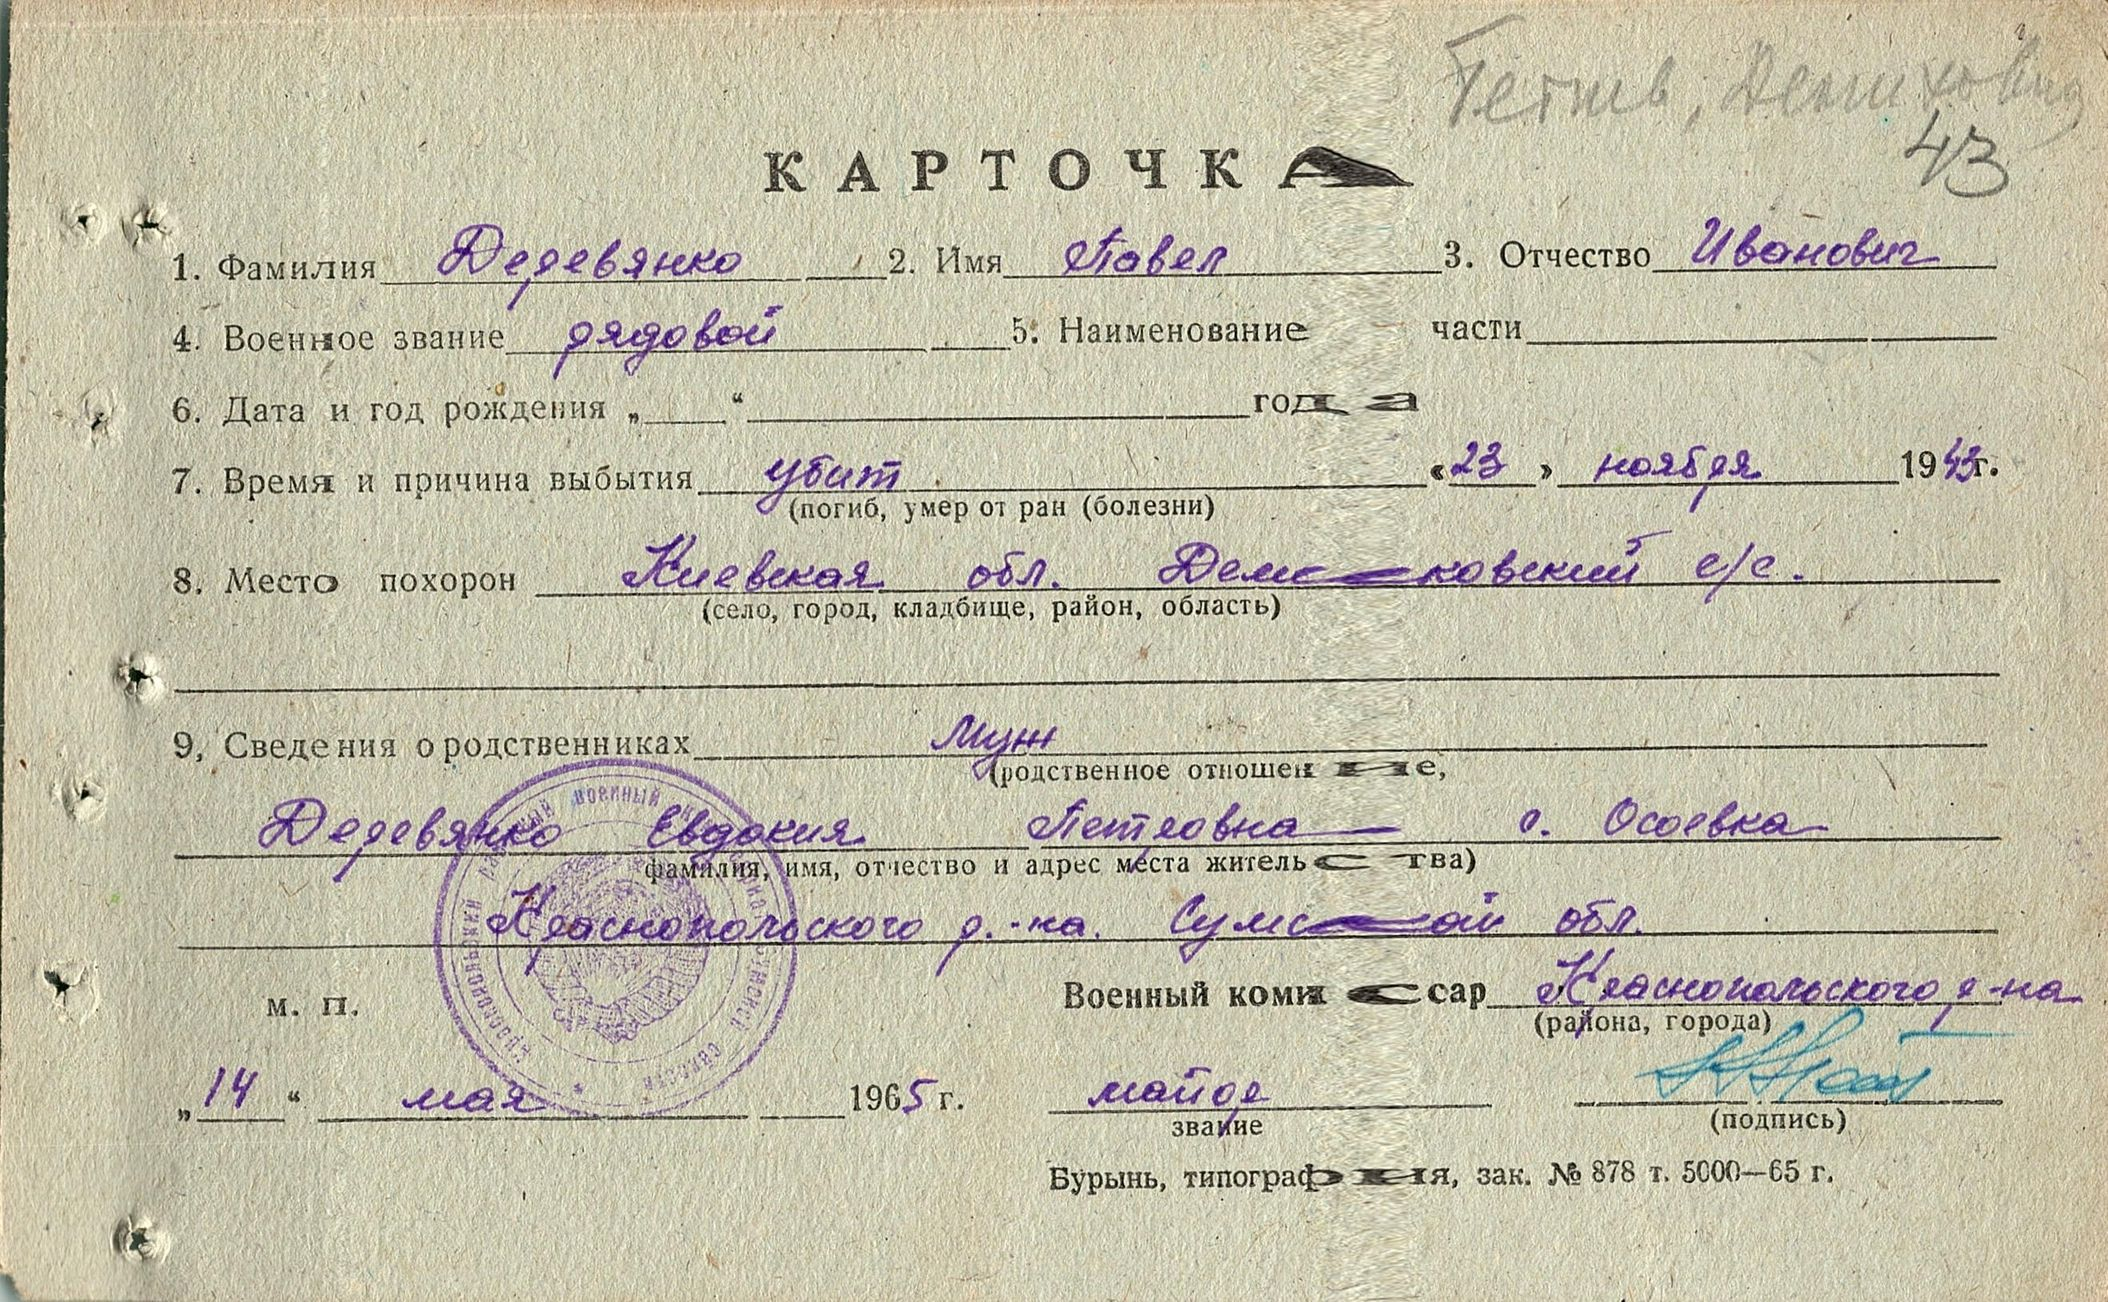 43
КАРТОЧКА
1. Фамилия Деревянко 2. Имя Павел 3. Отчество Иванович
4. Военное звание рядовой 5. Наименование части
6. Дата и год рождения „ “ года
7. Время и причина выбытия убит «23» ноября 1943г.
(погиб, умер от ран (болезни)
8. Место похорон Киевская обл. с/с.
(село, город, кладбище, район, область)
9, Сведения о родственниках Муж
(родственное отношение,
Деревянко Евдокия Петровна с. Осоевка
фамилия, имя, отчество и адрес места жительства)
Краснопольского р.-на. Сумской обл.
м. п. Военный комиссар Краснопольского р-на
(района, города)
„14“ мая 1965 г. майор
звание (подпись)
Бурынь, типография, зак. № 878 т. 5000—65 г.